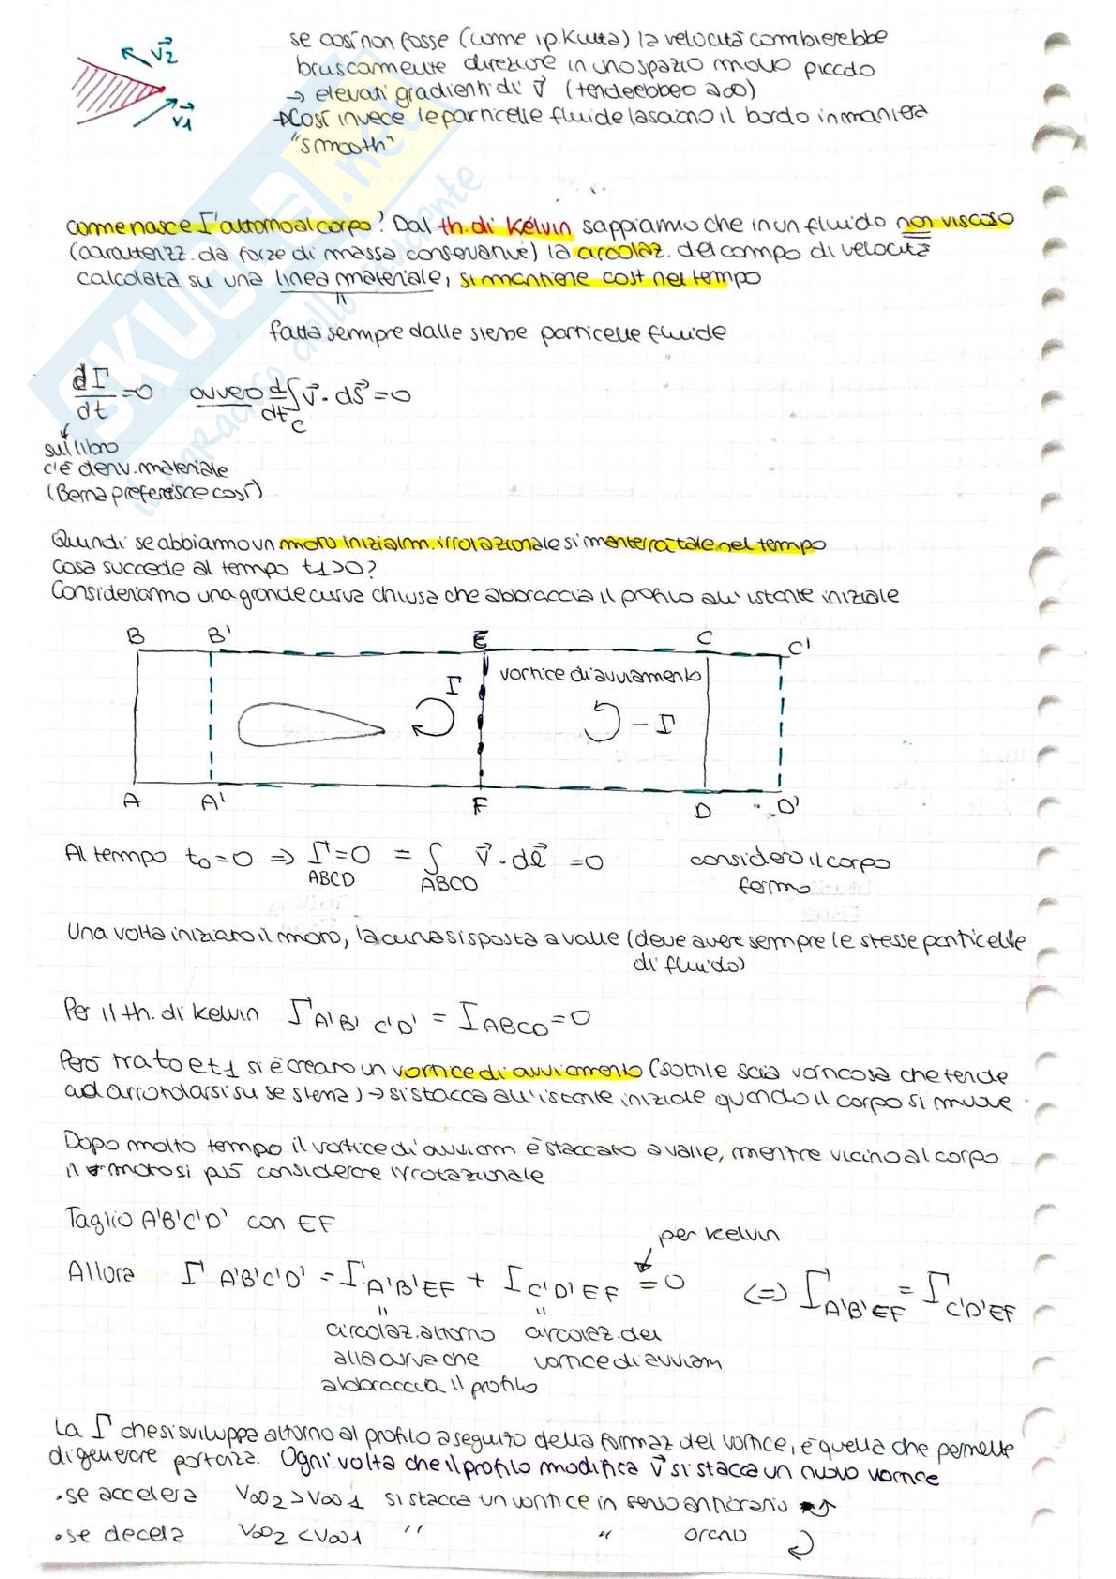 se così non fosse (come ip Kutta) la velocità cambierebbe
bruscamente direzione in uno spazio molto piccolo
→ elevati gradienti di v⃗ (tenderebbero a ∞)
→ Così invece le particelle fluide lasciano il bordo in maniera
"smooth"
v⃗2
v⃗1
come nasce Γ attorno al corpo? Dal th. di Kelvin sappiamo che in un fluido non viscoso
(caratterizz. da forze di massa conservative) la circolaz. del campo di velocità
calcolata su una linea materiale, si mantiene cost nel tempo
fatta sempre dalle stesse particelle fluide
dΓ/dt = 0 ovvero d/dt ∫C v⃗ · ds⃗ = 0
sul libro
c'è deriv. materiale
(Berna preferisce così)
Quindi se abbiamo un moto inizialm. irrotazionale si manterrà tale nel tempo
Cosa succede al tempo t1>0?
Consideriamo una grande curva chiusa che abbraccia il profilo all'istante iniziale
B B' E C C'
vortice di avviamento
Γ
- Γ
A A' F D D'
Al tempo t0=0 ⇒ Γ ABCD = 0 = ∫ABCD v⃗ · dl⃗ = 0 considero il corpo
fermo
Una volta iniziato il moto, la curva si sposta a valle (deve avere sempre le stesse particelle
di fluido)
Per il th. di Kelvin Γ A'B'C'D' = Γ ABCD = 0
Però tra t0 e t1 si è creato un vortice di avviamento (sottile scia vorticosa che tende
ad arrotolarsi su se stessa) → si stacca all'istante iniziale quando il corpo si muove
Dopo molto tempo il vortice di avviam è staccato a valle, mentre vicino al corpo
il moto si può considerare irrotazionale
Taglio A'B'C'D' con EF
per Kelvin
Allora Γ A'B'C'D' = Γ A'B'EF + Γ C'D'EF = 0 (=) Γ A'B'EF = Γ C'D'EF
" "
circolaz. attorno circolaz. del
alla curva che vortice di avviam
abbraccia il profilo
La Γ che si sviluppa attorno al profilo a seguito della formaz del vortice, è quella che permette
di generare portanza. Ogni volta che il profilo modifica v⃗ si stacca un nuovo vortice
• se accelera V∞2 > V∞1 si stacca un vortice in senso antiorario
• se decela V∞2 < V∞1 " " orario
SKUOLA.net
il paradiso dello studente